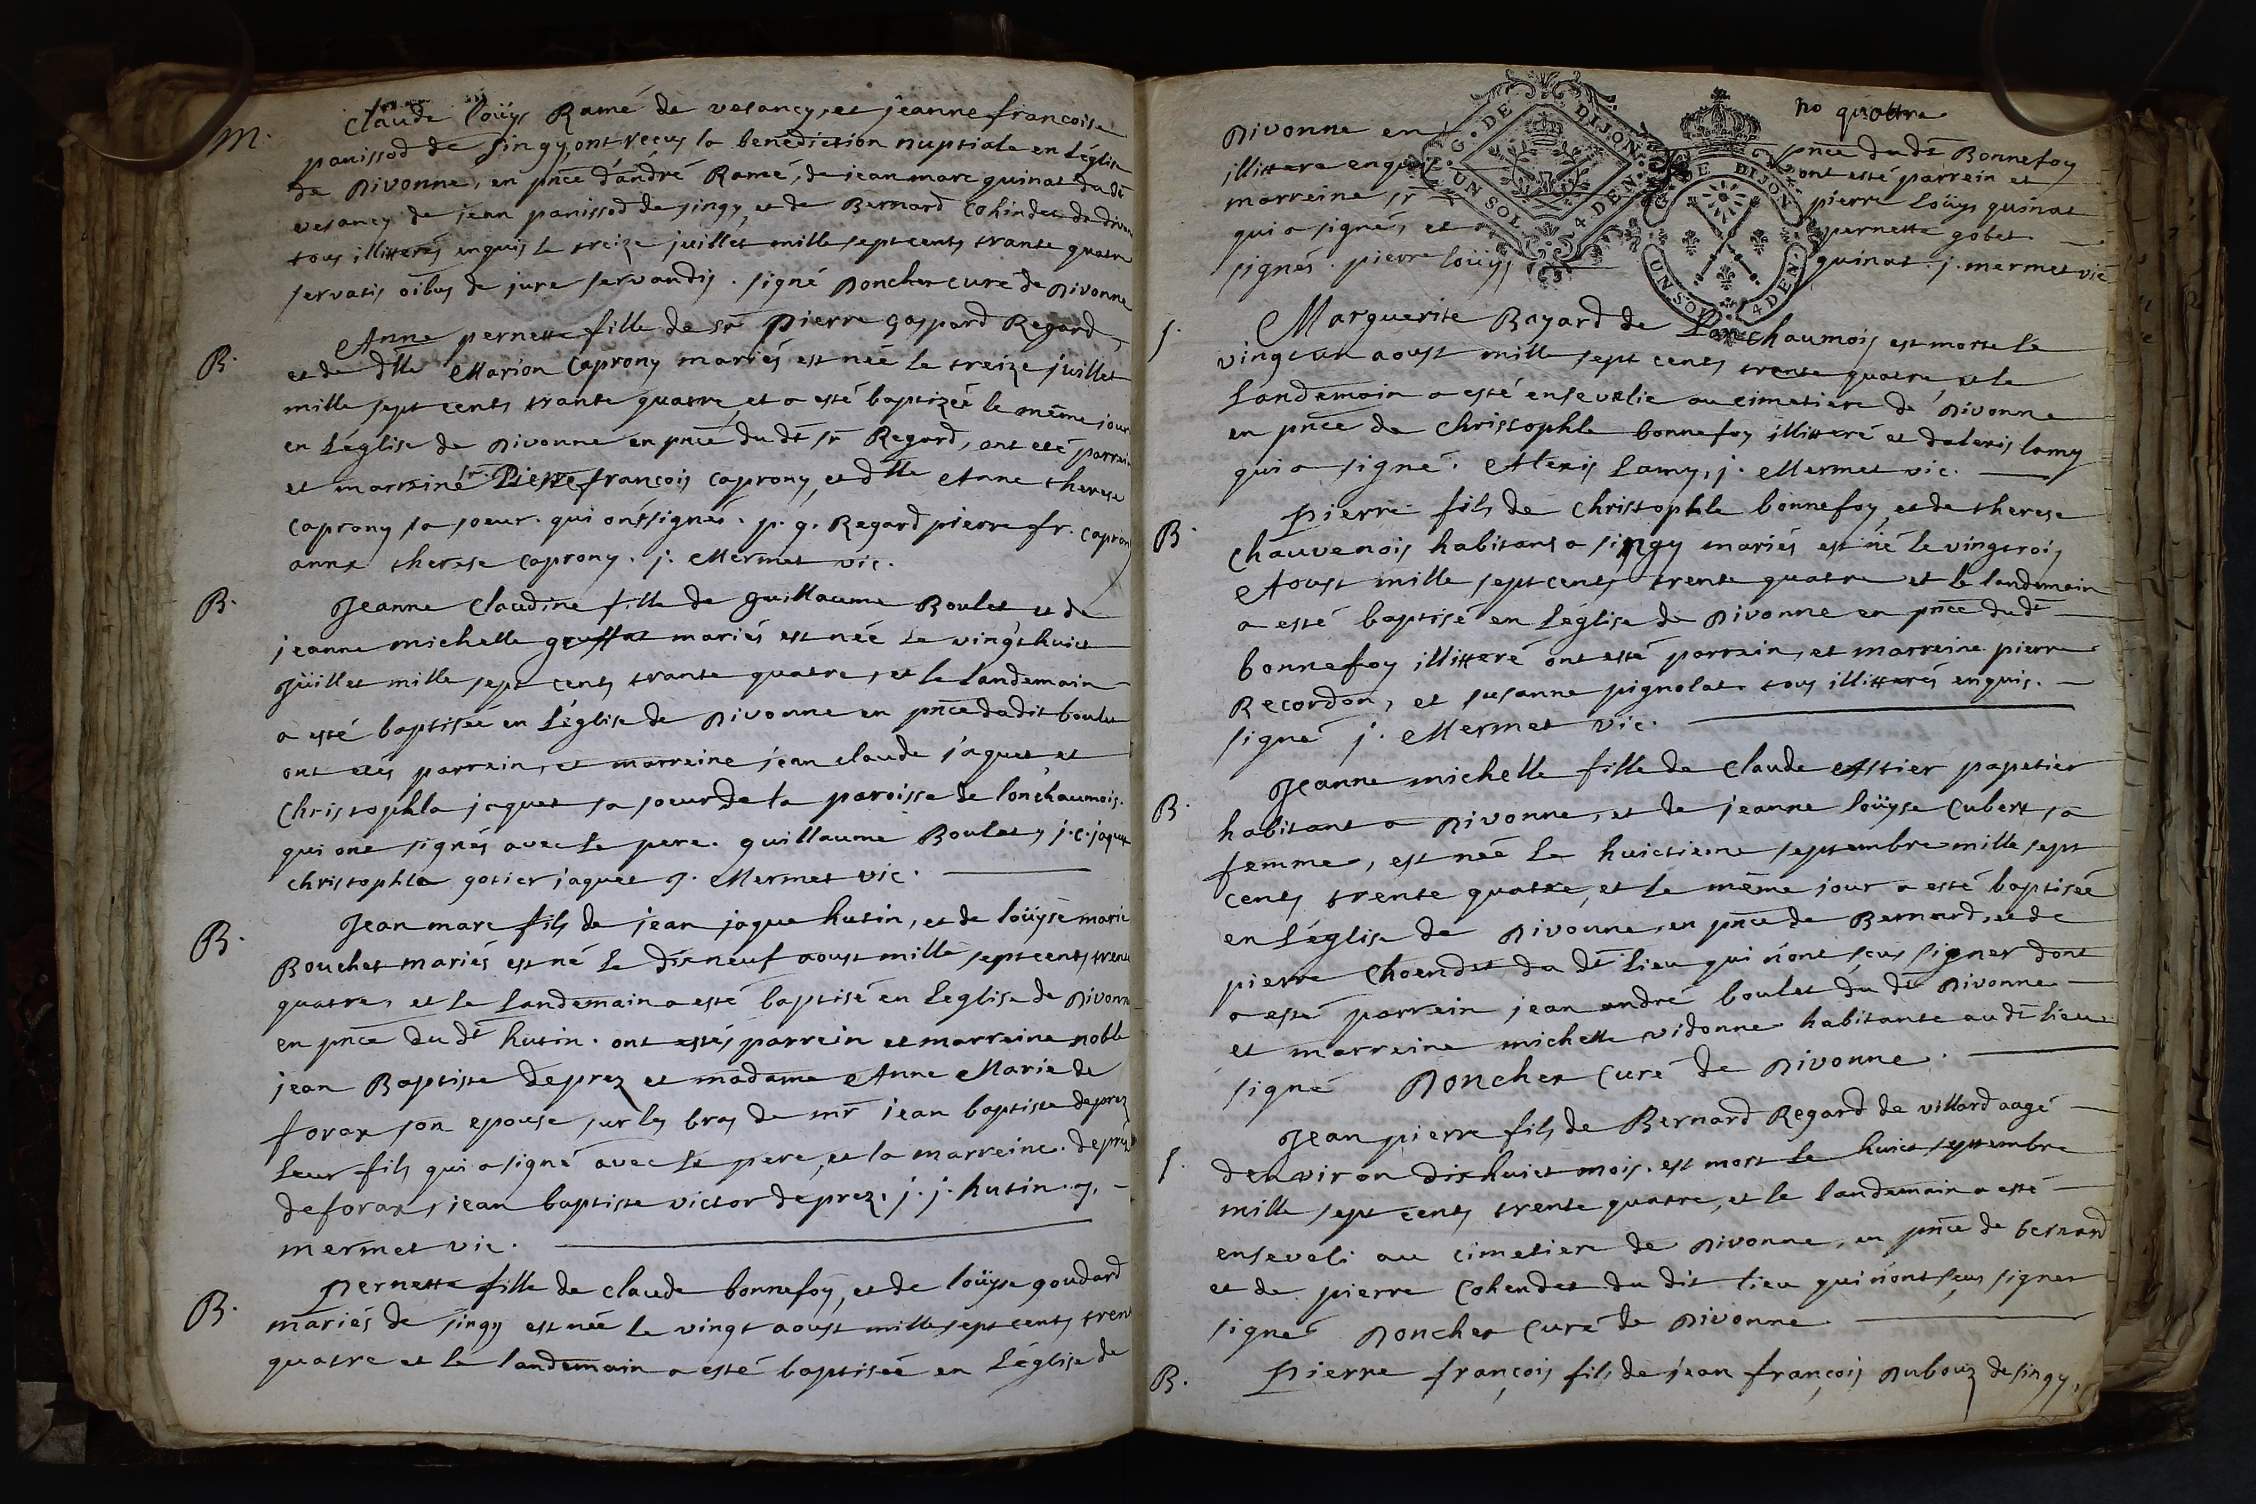 M. Claude loüys Ramé de vesancy, et jeanne francoise
panissod de singy, ont recus la benediction nuptiale en Léglise
de Divonne, en pnce d'andré Ramé, de jean marc quinat du dt
vesancy de jean panissod de singy, et de Bernard Cohindet de divon
tous illitterés enquis le treize juillet mille sept cents trante quatre
servatis oibus de jure servandis. signé Doncher curé de Divonne
B. Anne pernette fille de Sr Pierre gaspard Regard,
et de dlle Marion Caprony mariés est née le treize juillet
mille sept cents trante quatre, et a esté baptizeé le même jour
en Léglise de Divonne en pnce du dt sr Regard, ont eté parrain
et marraine sr. Pierre françois caprony, et dlle Anne therese
Caprony sa soeur. qui ont signés. p. g. Regard pierre fr. capron
anne therese caprony. j. Mermet vic.
B. Jeanne Claudine fille de guillaume Boulet et de
jeanne michelle gruffat mariés est née le vingt huict
Jüillet mille sept cents trante quatre, et le landemain
a esté baptiseé en Léglise de Divonne en pnce dudit boulet
ont etés parrein, et marreine jean claude jaquet et
Christophla jaquet sa soeur de la paroisse de lonchaumois.
qui ont signés avec le pere. guillaume Boulet, j. c. jaquet
christophla gotier jaquet J. Mermet vic.
B. Jean marc fils de jean jaque hutin, et de loüyse marie
Bouchet mariés est né le dix neuf aoust mille sept cents trent
quatre, et le landemain a esté baptisé en Leglise de Divonn
en pnce du dt hutin. ont estés parrein et marreine noble
jean Baptiste deprez et madame Anne Marie de
forax son epouse sur les bras de mr jean baptiste deprez
leur fils qui a signé avec le pere, et la marreine. deprez
deforax, jean baptiste victor deprez. j. j. hutin. J.
mermet vic.
B. Pernette fille de claude bonnefoy, et de loüyse goudard
mariés de singy est née le vingt aoust mille sept cents tren
quatre et le landemain a esté baptiseé en Léglise de
no quattre
Divonne en pnce du dt Bonnefoy
illittere enquis ont esté parrein et
marreine sr pierre loüys quinat
qui a signés, et pernette gobet
signés. pierre loüys quinat. j. mermet vic
G. DE DIJON. UN SOL. 4 DEN.
G. DE DIJON UN SOL 4 DEN.
S. Marguerite Bayard de Lonchaumois est morte le
vingt un aoust mille sept cents trante quatre et le
Landemain a esté ensevelie au cimetiere de Divonne
en pnce de Christophle bonnefoy illitteré et dalexis lamy
qui a signé. Alexis Lamy, j. Mermet vic.
B. Pierre fils de Christophle bonnefoy, et de therese
Chauvenois habitans a singy mariés est né le vingtrois
Aoust mille sept cents trente quatre et le landemain
a esté baptisé en Léglise de Divonne en pnce du dt
bonnefoy illitteré ont esté parrein, et marreine pierre
Recordon, et susanne pignolat. tous illitterés enquis.
signé j. Mermet vic.
B. Jeanne michelle fille de Claude Astier papetier
habitant a Divonne, et de jeanne loüyse Cubert sa
femme, est née le huictieme septembre mille sept
cents trente quatre, et le même jour a esté baptiseé
en Léglise de Divonne, en pnce de Bernard, et de
pierre Choendet du dt lieu qui n'ont sçus signer dont
a esté parrein jean andré boulet du dt Divonne
et marreine michelle vidonne habitante au dt lieu
signé Doncher Curé de Divonne.
S. Jean pierre fils de Bernard Regard de villard aagé
denviron dixhuict mois. est mort le huict septembre
mille sept cents trente quatre, et le landemain a esté
enseveli au cimetiere de Divonne, en pnce de bernard
et de pierre Cohendet du dit lieu qui n'ont sçus signer
signé Doncher Curé de Divonne
B. Pierre françois fils de jean françois Dubouz de singy,